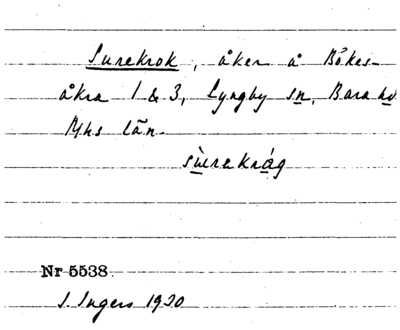 Surekrok, åker å Bökes-
åkra 1 & 3, Lyngby sn, Bara hd
Mhs län.
sùrekråg
Nr 5538
I. Ingers 1920